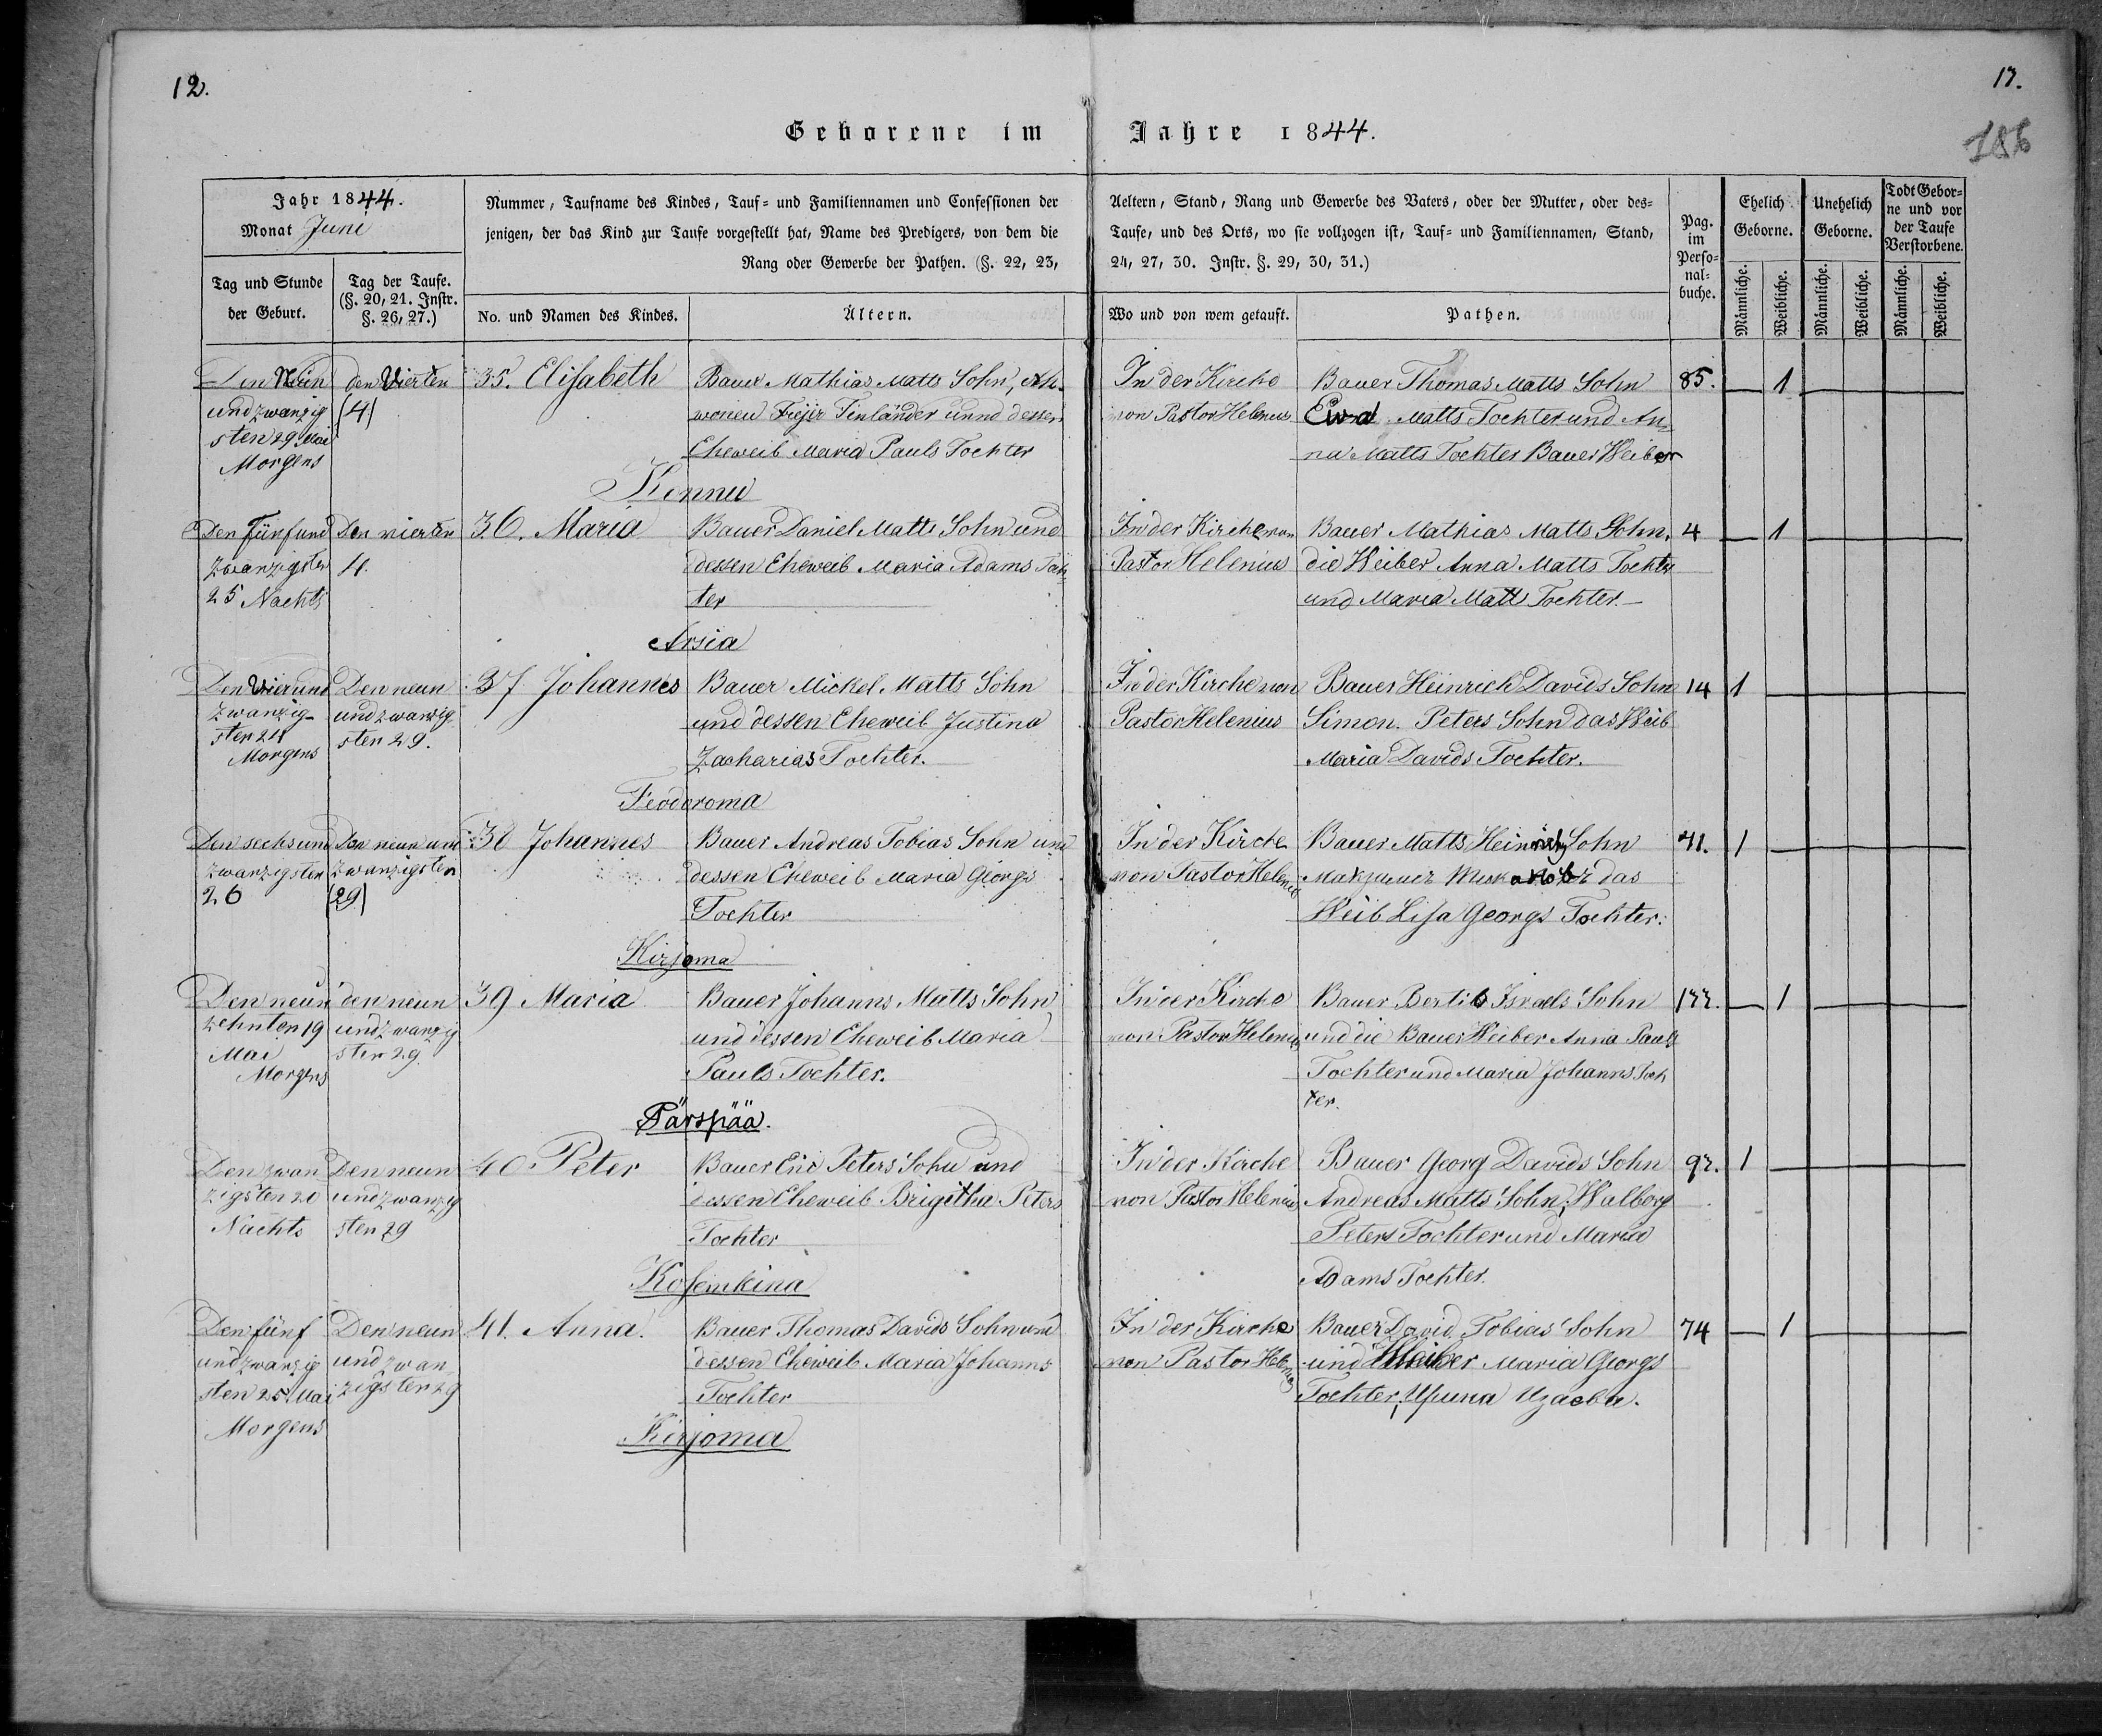 12.
13.
186
Geborene im Jahre 1844.
Jahr 1844.
Monat Juni
Tag und Stunde der Geburt.
Tag der Taufe. (§. 20, 21. Instr. §. 26, 27.)
Nummer, Taufname des Kindes, Tauf- und Familiennamen und Confessionen der Aeltern, Stand, Rang und Gewerbe des Vaters, oder der Mutter, oder des-
jenigen, der das Kind zur Taufe vorgestellt hat, Name des Predigers, von dem die Taufe, und des Orts, wo sie vollzogen ist, Tauf- und Familiennamen, Stand,
Rang oder Gewerbe der Pathen. (§. 22, 23, 24, 27, 30. Instr. §. 29, 30, 31.)
No. und Namen des Kindes.
Ältern.
Wo und von wem getauft.
Pathen.
Pag. im Perso-nal-buche.
Ehelich Geborne.
Unehelich Geborne.
Todt Gebor-ne und vor der Taufe Verstorbene.
Männliche.
Weibliche.
Männliche.
Weibliche.
Männliche.
Weibliche.
Den Neun
und zwanzig
sten 29. Mai
Morgens
den Vierten
(4)
35. Elisabeth
Bauer Mathias Matts Sohn,
Finländer unnd dessen
Eheweib Maria Pauls Tochter
In der Kirche
von Pastor Helenius
Bauer Thomas Matts Sohn
Ewa Matts Tochter und An-
na Matts Tochter Bauer Weiber
85.
1
Konnu
Den Fünf und
zwanzigsten
25 Nachts
Den vierten
4.
36. Maria
Bauer Daniel Matts Sohn und
dessen Eheweib Maria Adams Toch
ter
In der Kirche von
Pastor Helenius
Bauer Mathias Matts Sohn,
die Weiber Anna Matts Tochter
und Maria Matts Tochter.
4
1
Arsia
Den Vier und
zwanzig
sten 24
Morgens
Den neun
und zwanzig
sten 29.
37 Johannes
Bauer Mickel Matts Sohn
und dessen Eheweib Justina
Zacharias Tochter.
In der Kirche von
Pastor Helenius
Bauer Heinrich Davids Sohn
Simon Peters Sohn das Weib
Maria Davids Tochter.
14
1
Feodoroma
Den sechs und
zwanzigsten
26
Den neun und
zwanzigsten
(29)
38 Johannes
Bauer Andreas Tobias Sohn und
dessen Eheweib Maria Georgs
Tochter
In der Kirche
von Pastor Helenius
Bauer Matts Heinrichs Sohn
das
Weib Lisa Georgs Tochter.
41.
1
Kirjoma
Den neun
zehnten 19
Mai
Morgens
den neun
und zwanzig
sten 29
39 Maria
Bauer Johanns Matts Sohn
und dessen Eheweib Maria
Pauls Tochter.
In der Kirche
von Pastor Helenius
Bauer Bertil Israels Sohn
und die Bauer Weiber Anna Pauls
Tochter und Maria Johanns Toch
ter.
1
Pärspää.
Den zwan
zigsten 20
Nachts
Den neun
und zwanzig
sten 29
40. Peter
Bauer Eric Peters Sohn und
dessen Eheweib Brigitha Peters
Tochter
In der Kirche
von Pastor Helenius
Bauer Georg Davids Sohn
Andreas Matts Sohn, Walborg
Peters Tochter und Maria
Adams Tochter.
1
Kosemkina
Den fünf
und zwanzig
sten 25. Mai
Morgens
Den neun
und zwan
zigsten 29
41. Anna.
Bauer Thomas Davids Sohn und
dessen Eheweib Maria Johanns
Tochter
In der Kirche
von Pastor Helenius
Bauer David Tobias Sohn
und Weiber Maria Georgs
Tochter,
74
1
Kirjoma